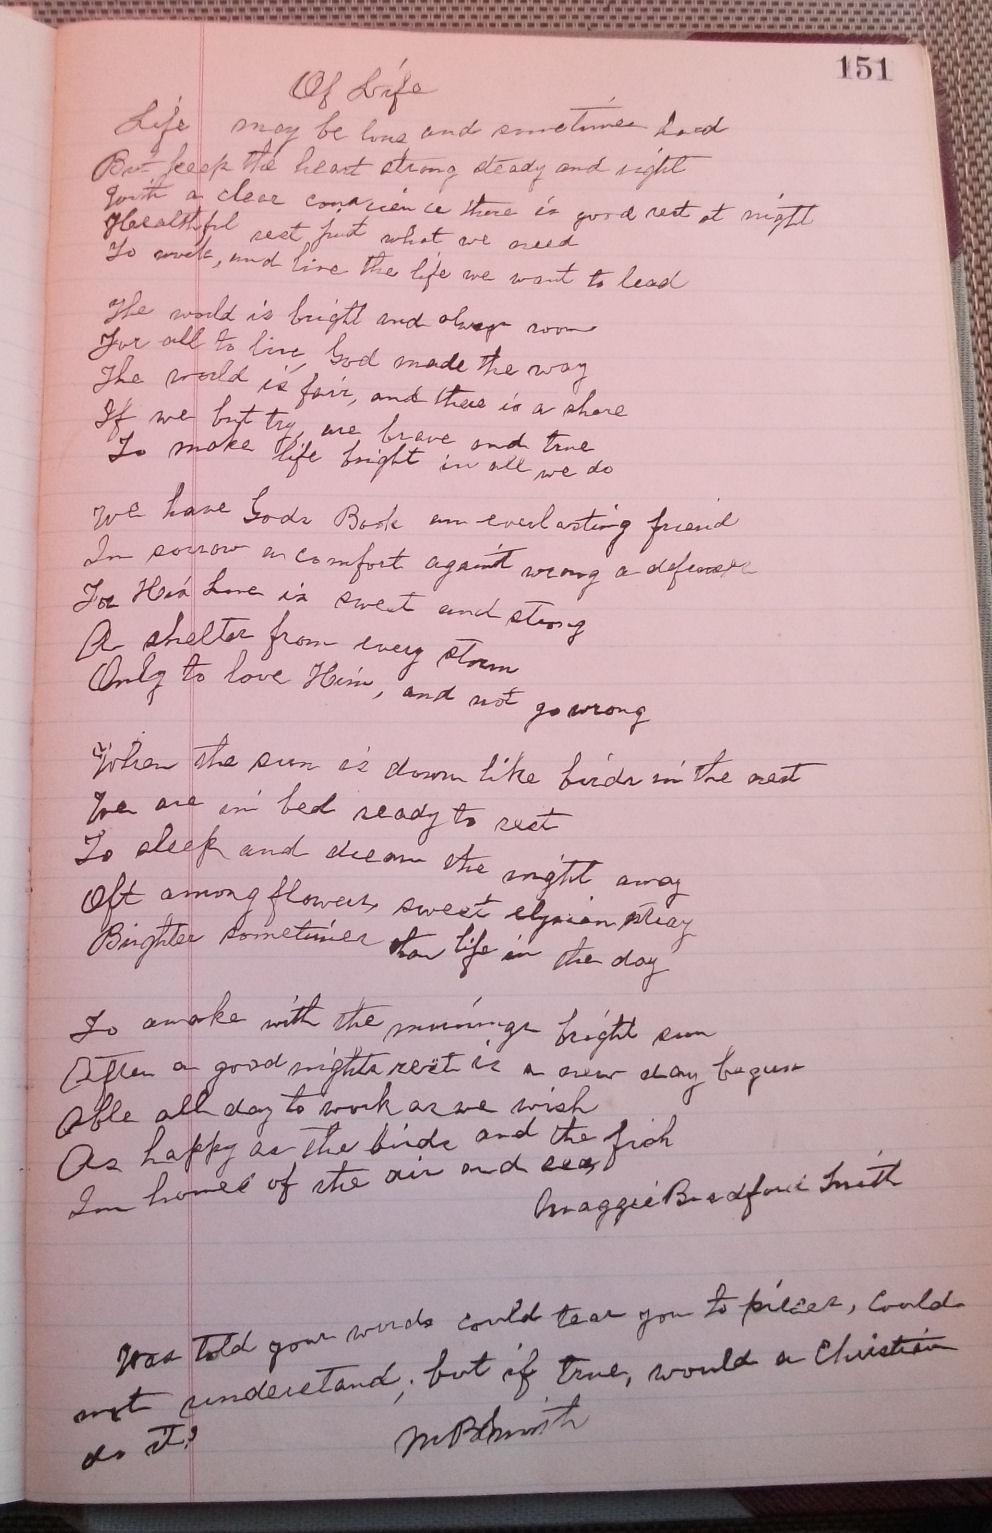 151
Of Life
Life may be long and sometimes hard
But keep the heart strong steady and right
With a clear conscience there is good rest at night
Healthful rest just what we need
To work, and live the life we want to lead
The world is bright and always room
For all to live, God made the way
The world is fair, and there is a share
If we but try, are brave and true
To make life bright in all we do
We have Gods Book an everlasting friend
In sorrow a comfort against wrong a defense
For His Love is sweet and strong
A shelter from every storm
Only to love Him, and not go wrong
When the sun is down like birds in the nest
We are in bed ready to rest
To sleep and dream the night away
Oft among flowers, sweet elysian stray
Brighter sometimes than life in the day
To awake with the mornings bright sun
After a good nights rest is a new day begun
Able all day to work as we wish
As happy as the birds and the fish
In homes of the air and sea,
Maggie Bradford Smith
Was told your words could tear you to pieces, could
not understand; but if true, would a Christian
do it?
M B Smith